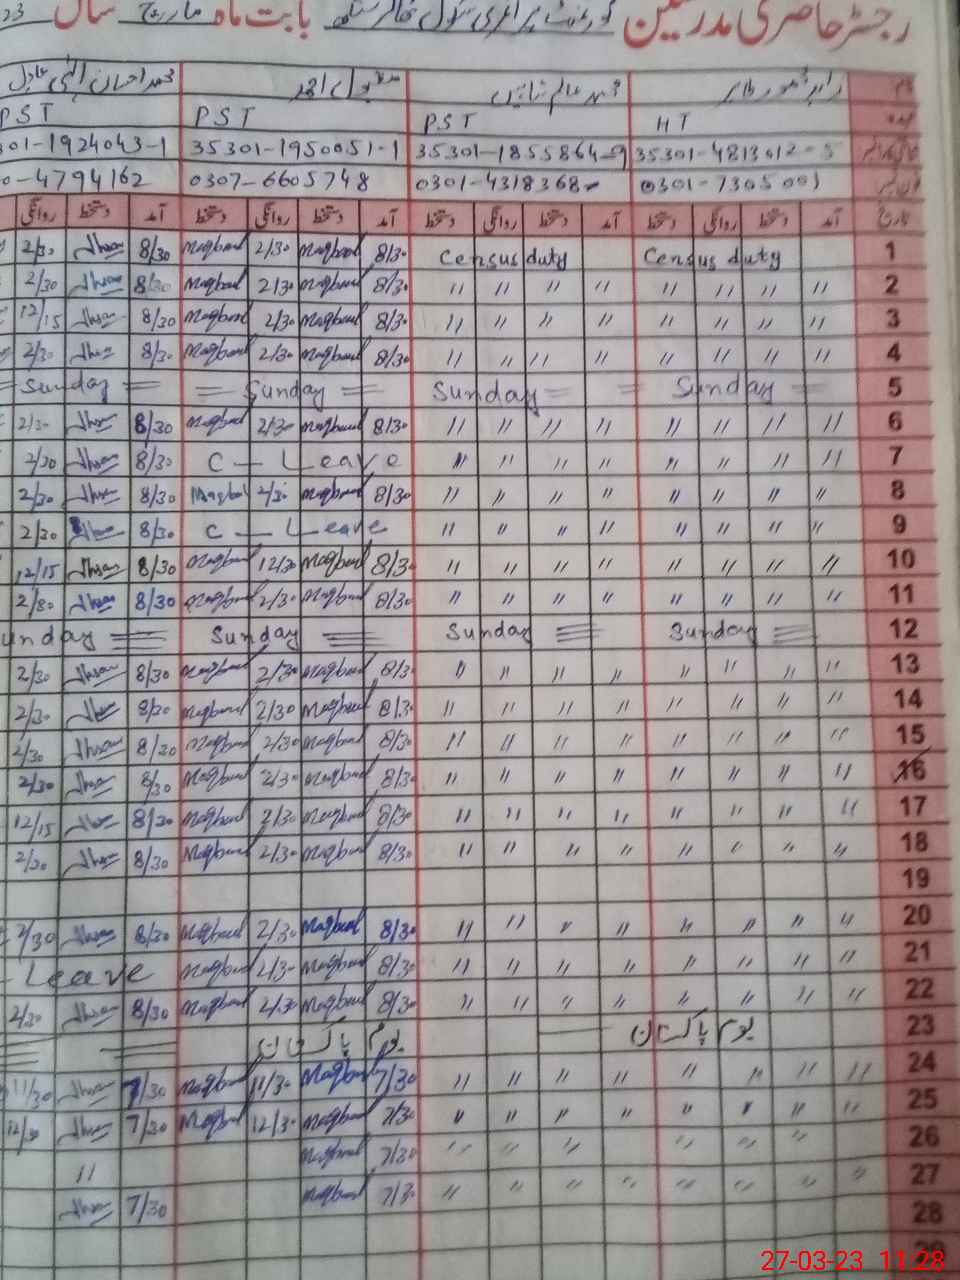 رجسٹر حاضری مدرسین گورنمنٹ پرائمری سکول بابت ماہ مارچ سال 23
نام محمد عالم مقبول احمد محمد احسان الٰہی عادل
عہدہ HT PST PST PST
35301-4813612-5 35301-1855864-9 35301-1950051-1 301-1924043-1
0301-7305001 0301-4318368 0307-6605748 0-4794162
تاریخ آمد دستخط روانگی دستخط آمد دستخط روانگی دستخط آمد دستخط روانگی دستخط آمد دستخط روانگی
1 Census duty Census duty 8/30 Maqbool 2/30 Maqbool 8/30 Ihsan 2/30
2 〃 〃 〃 〃 〃 〃 〃 〃 8/30 Maqbool 2/30 Maqbool 8/30 Ihsan 2/30
3 〃 〃 〃 〃 〃 〃 〃 〃 8/30 Maqbool 2/30 Maqbool 8/30 Ihsan 12/15
4 〃 〃 〃 〃 〃 〃 〃 〃 8/30 Maqbool 2/30 Maqbool 8/30 Ihsan 2/30
5 Sunday Sunday Sunday Sunday
6 〃 〃 〃 〃 〃 〃 〃 〃 8/30 Maqbool 2/30 Maqbool 8/30 Ihsan 2/30
7 〃 〃 〃 〃 〃 〃 〃 〃 C — Leave 8/30 Ihsan 2/30
8 〃 〃 〃 〃 〃 〃 〃 〃 8/30 Maqbool 2/30 Maqbool 8/30 Ihsan 2/30
9 〃 〃 〃 〃 〃 〃 〃 〃 C — Leave 8/30 Ihsan 2/30
10 〃 〃 〃 〃 〃 〃 〃 〃 8/30 Maqbool 12/30 Maqbool 8/30 Ihsan 12/15
11 〃 〃 〃 〃 〃 〃 〃 〃 8/30 Maqbool 2/30 Maqbool 8/30 Ihsan 2/30
12 Sunday Sunday Sunday unday
13 〃 〃 〃 〃 〃 〃 〃 〃 8/30 Maqbool 2/30 Maqbool 8/30 Ihsan 2/30
14 〃 〃 〃 〃 〃 〃 〃 〃 8/30 Maqbool 2/30 Maqbool 8/30 Ihsan 2/30
15 〃 〃 〃 〃 〃 〃 〃 〃 8/30 Maqbool 2/30 Maqbool 8/30 Ihsan 2/30
16 〃 〃 〃 〃 〃 〃 〃 〃 8/30 Maqbool 2/30 Maqbool 8/30 Ihsan 2/30
17 〃 〃 〃 〃 〃 〃 〃 〃 8/30 Maqbool 2/30 Maqbool 8/30 Ihsan 12/15
18 〃 〃 〃 〃 〃 〃 〃 〃 8/30 Maqbool 2/30 Maqbool 8/30 Ihsan 2/30
19
20 〃 〃 〃 〃 〃 〃 〃 〃 8/30 Maqbool 2/30 Maqbool 8/30 Ihsan 2/30
21 〃 〃 〃 〃 〃 〃 〃 〃 8/30 Maqbool 2/30 Maqbool Leave
22 〃 〃 〃 〃 〃 〃 〃 〃 8/30 Maqbool 2/30 Maqbool 8/30 Ihsan 2/30
23 یوم پاکستان یوم پاکستان
24 〃 〃 〃 〃 〃 〃 〃 〃 7/30 Maqbool 11/30 Maqbool 7/30 Ihsan 11/30
25 〃 〃 〃 〃 〃 〃 〃 〃 7/30 Maqbool 12/30 Maqbool 7/30 Ihsan 12/30
26 〃 〃 〃 〃 〃 〃 〃 7/30 Maqbool 〃
27 〃 〃 〃 〃 〃 〃 〃 〃 7/30 Maqbool 7/30 Ihsan
28
29
27-03-23 11:28